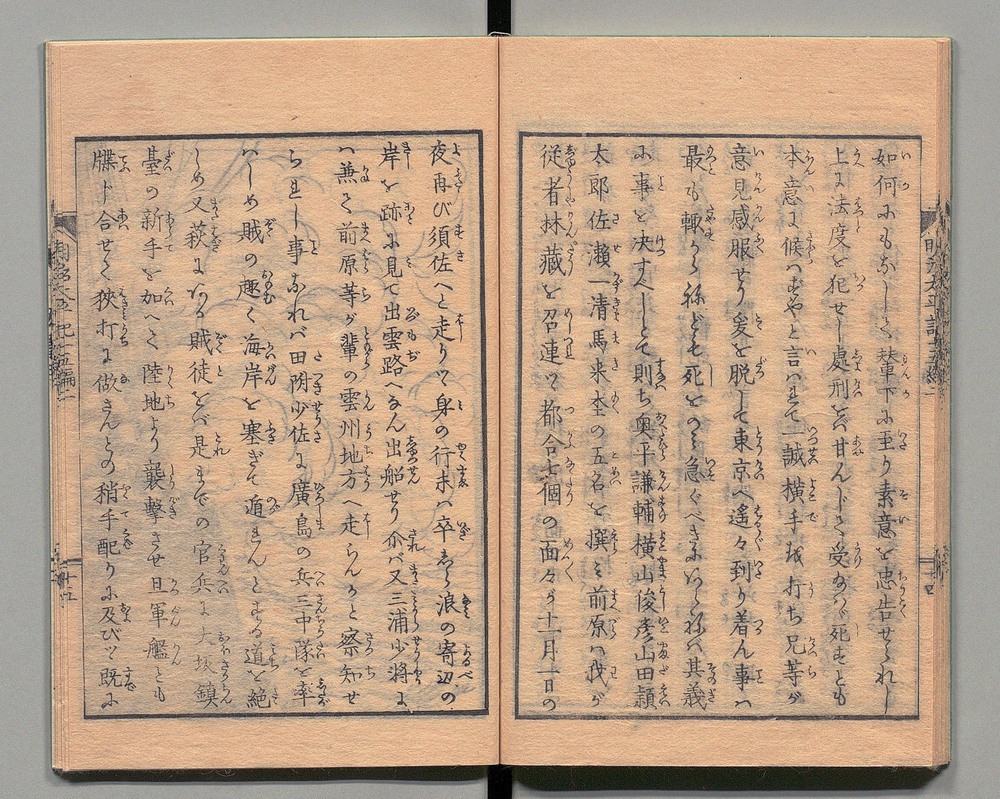 如何にもなして輦下に至り素意を忠告せられし
上は法度を犯せし處刑をバ甘んじて受なバ死すとも
本意に候ハずやと言ハれて一誠横手を打ち兄等が
意見感服せり爰を脱して東京へ遙々到り着ん事ハ
最も輙からねども死をのミ急ぐべきにあらねハ其義
に事を决すべしとて則ち奥平謙輔横山俊彦山田頴
太郎佐瀬一清馬来杢の五名を撰ミ前原ハ我が
従者林藏を召連て都合七個の面々が十一月一日の
夜再び須佐へと走りツ身の行末ハ卒しら浪の寄辺の
岸を跡に見て出雲路へなん出船せり介バ又三浦少将は
ハ兼て前原等が輩の雲州地方へ走らんかと察知せ
られし事なれバ田閃少佐に廣島の兵三中隊を率
ハしめ賊の趣く海岸を塞ぎて遁れんとする道を絶
しめ又萩にゐる賊徒をバ是までの官兵に大坂鎮
臺の新手を加へて陸地より襲撃させ且軍艦とも
牒ト合せて狹打に做さんとの稍手配りに及びツ既に
明治太平記五編一
十四
十五